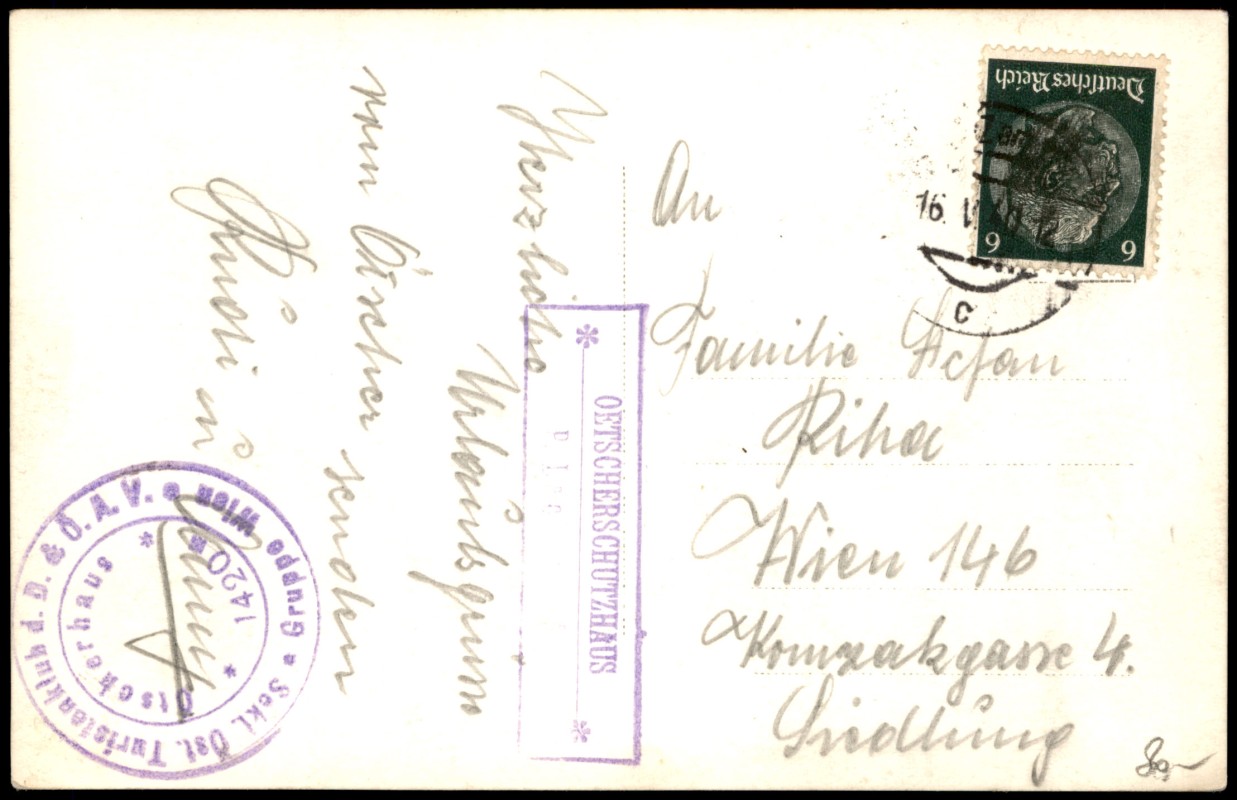 Herzliche
Urlaubsgrüße
vom Ötscher senden
Rudi u.
OETSCHERSCHUTZHAUS
Sekt. Öst. Turistenklub d. D. & Ö. A. V. Gruppe Wien
Ötscherhaus
1420 m
Deutsches Reich
6 6
16. V
12
c
An
Familie Stefan
Riha
Wien 146
Komzakgasse 4.
Siedlung